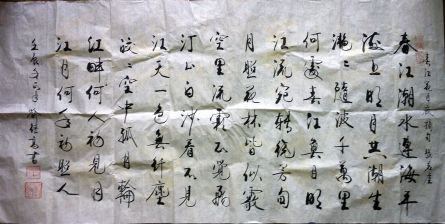 春江花月夜摘句 張若虛
春江潮水連海平
海上明月共潮生
灩々隨波千萬里
何處春江無月明
江流宛轉繞芳甸
月照花林皆似霰
空里流霜不覺飛
汀上白沙看不見
江天一色無纖塵
皎々空中孤月輪
江畔何人初見月
江月何年初照人
壬辰 書